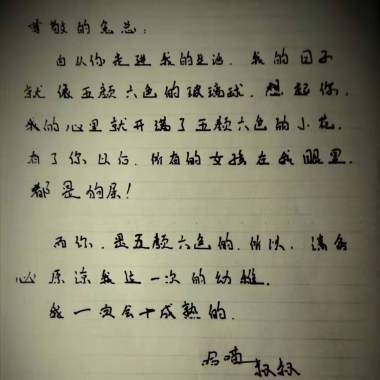 尊敬的兔总:
自从你走进我的生活,我的日子
就像五颜六色的玻璃球,想起你,
我的心里就开满了五颜六色的小花,
有了你以后,所有的女孩在我眼里,
都是狗屎!
而你,是五颜六色的,所以,请务
必原谅我这一次的幼稚,
我一定会十成熟的.
叔叔